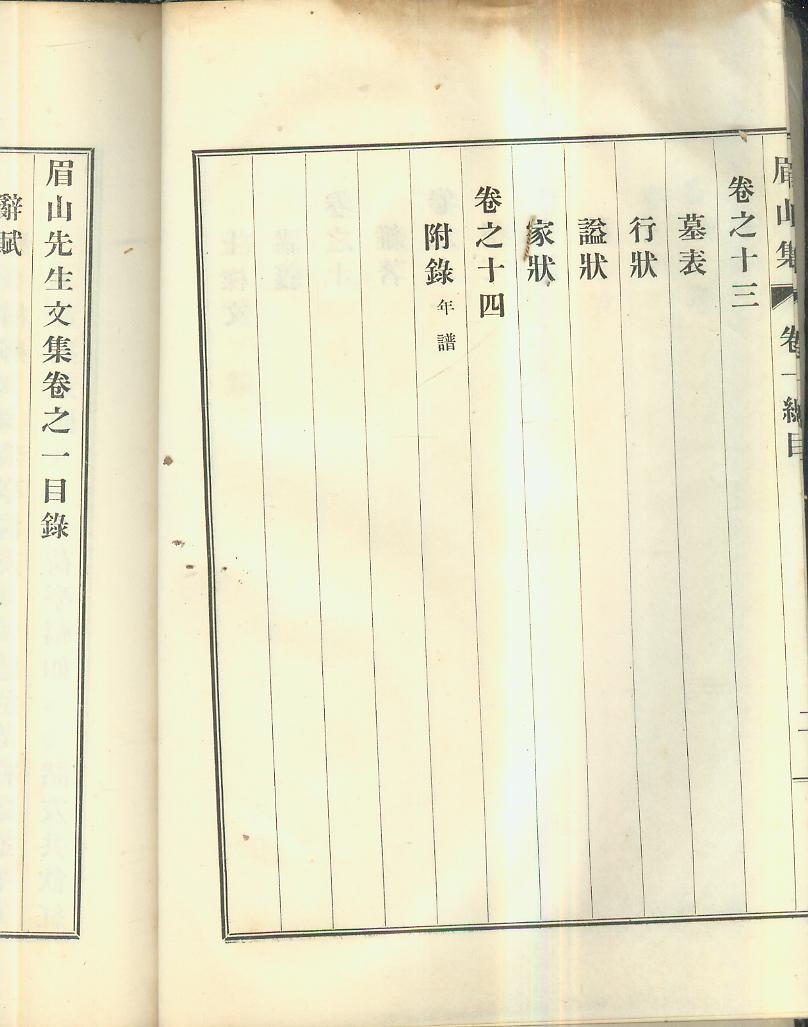 眉山集 卷一總目 二
卷之十三
墓表
行狀
謚狀
家狀
卷之十四
附錄 年譜
眉山先生文集卷之一目錄
辭賦